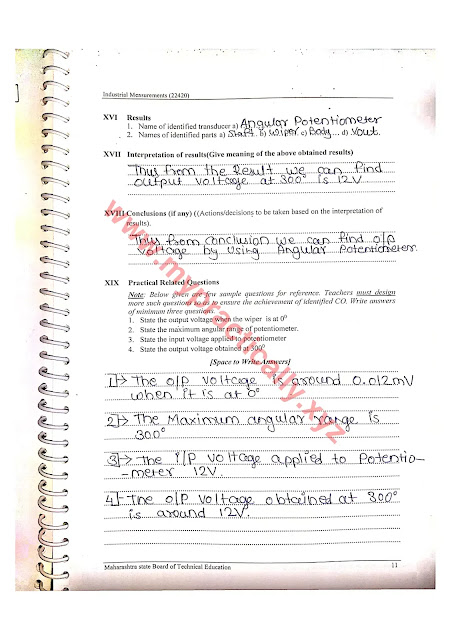 Industrial Measurements (22420)
XVI Results
1. Name of identified transducer a) Angular Potentiometer
2. Names of identified parts a) Shaft. b) wiper c) Body... d) Vout.
XVII Interpretation of results(Give meaning of the above obtained results)
Thus from the Result we can find
output voltage at 300° is 12V
XVIII Conclusions (if any) ((Actions/decisions to be taken based on the interpretation of
results).
Thus from conclusion we can find o/p
voltage by using Angular Potentiometer
XIX Practical Related Questions
Note: Below given are few sample questions for reference. Teachers must design
more such questions so as to ensure the achievement of identified CO. Write answers
of minimum three questions.
1. State the output voltage when the wiper is at 0⁰
2. State the maximum angular range of potentiometer.
3. State the input voltage applied to potentiometer
4. State the output voltage obtained at 300⁰
[Space to Write Answers]
1) → The o/p voltage is around 0.012mV
when it is at 0°
2) → The Maximum angular range is
300°
3) → The I/P voltage applied to Potentio-
-meter 12V.
4) → The o/p voltage obtained at 300°
is around 12V.
Maharashtra state Board of Technical Education 11
www.mypractically.xyz